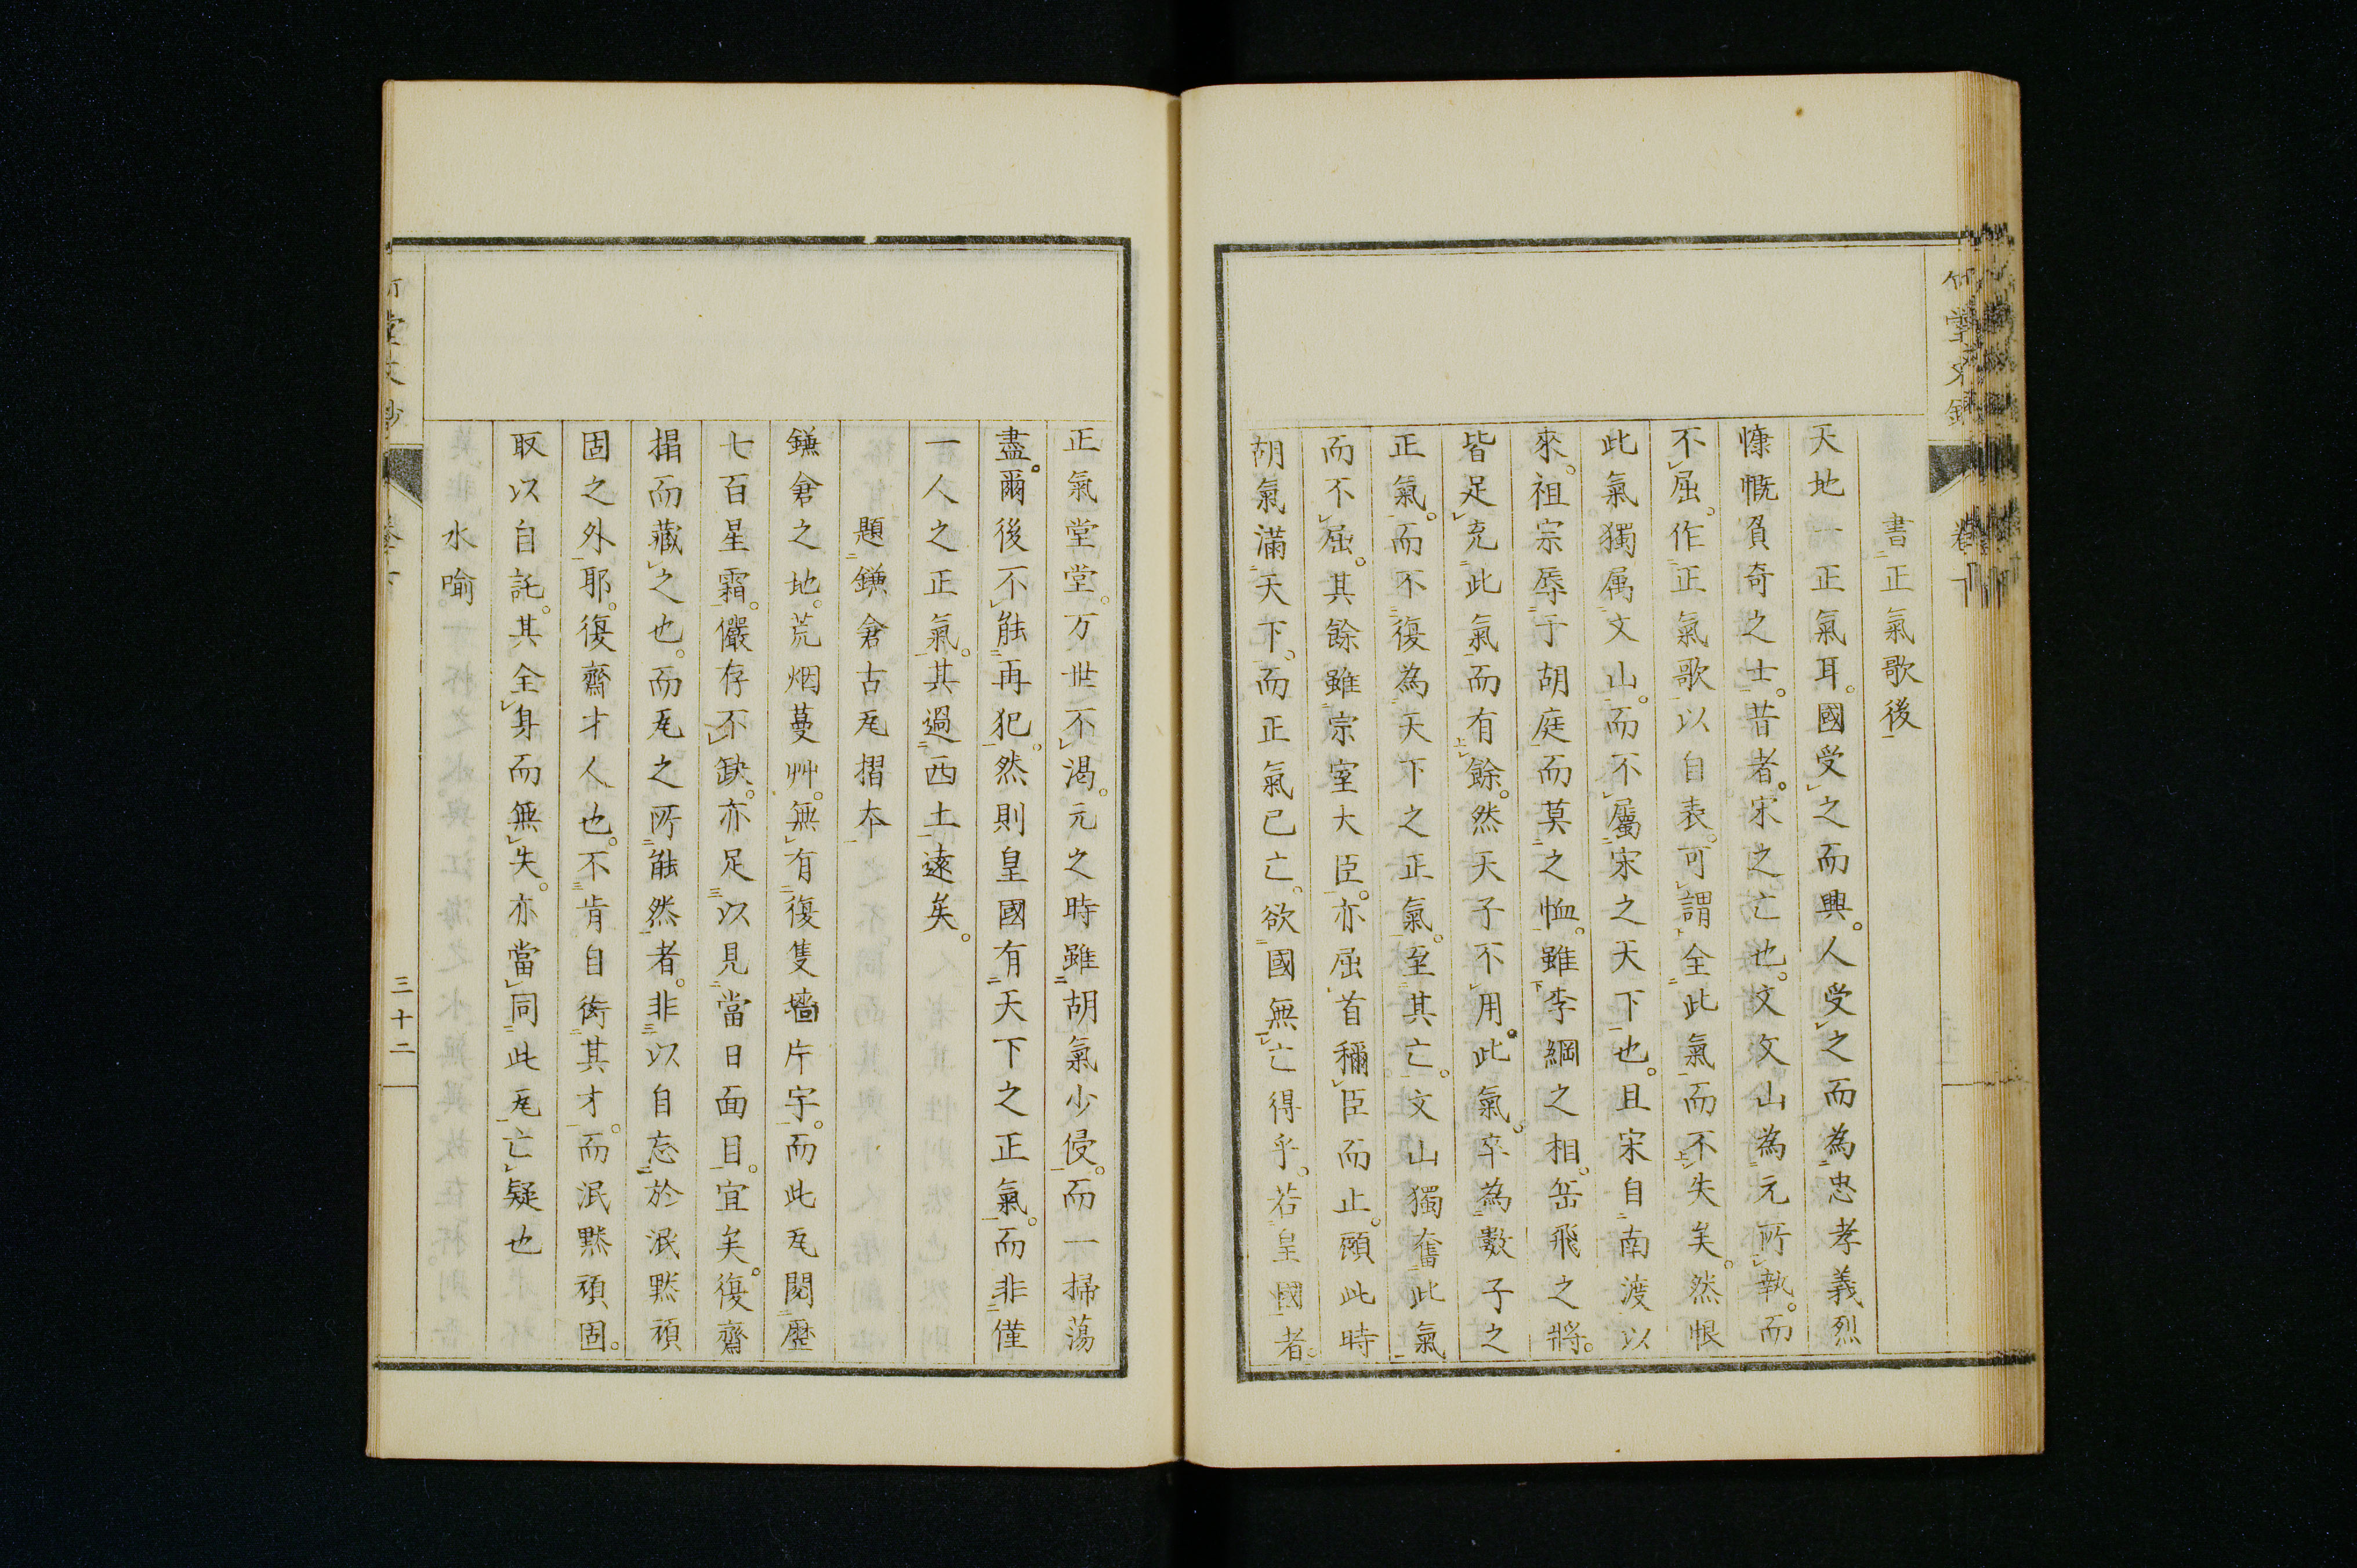 書正氣歌後
天地一正氣耳。國受之而興。人受之而為忠孝義烈
慷慨負奇之士。昔者。宋之亡也。文文山為元所執。而
不屈。作正氣歌以自表。可謂全此氣而不失矣。然恨
此氣獨属文山。而不屬宋之天下也。且宋自南渡以
來。祖宗辱于胡庭而莫之恤。雖李綱之相。岳飛之將。
皆足充此氣而有餘。然天子不用。此氣。卒為數子之
正氣。而不復為天下之正氣。至其亡。文山獨奮此氣
而不屈。其餘雖宗室大臣。亦屈首稱臣而止。顧此時
胡氣滿天下。而正氣已亡。欲國無亡得乎。若皇國者。
正氣堂堂。万世不渴。元之時雖胡氣少侵。而一掃蕩
盡。爾後不能再犯。然則皇國有天下之正氣。而非僅
一人之正氣。其過西土遠矣。
題鎌倉古瓦摺本
鎌倉之地。荒烟蔓艸。無有復隻墻片宇。而此瓦閱歷
七百星霜。儼存不缺。亦足以見當日面目。宜矣。復齋
搨而藏之也。而瓦之所能然者。非以自忘於泯黙頑
固之外耶。復齋才人也。不肯自衒其才。而泯黙頑固。
取以自託。其全身而無失。亦當同此瓦亡疑也
水喻
堂文鈔
三十二